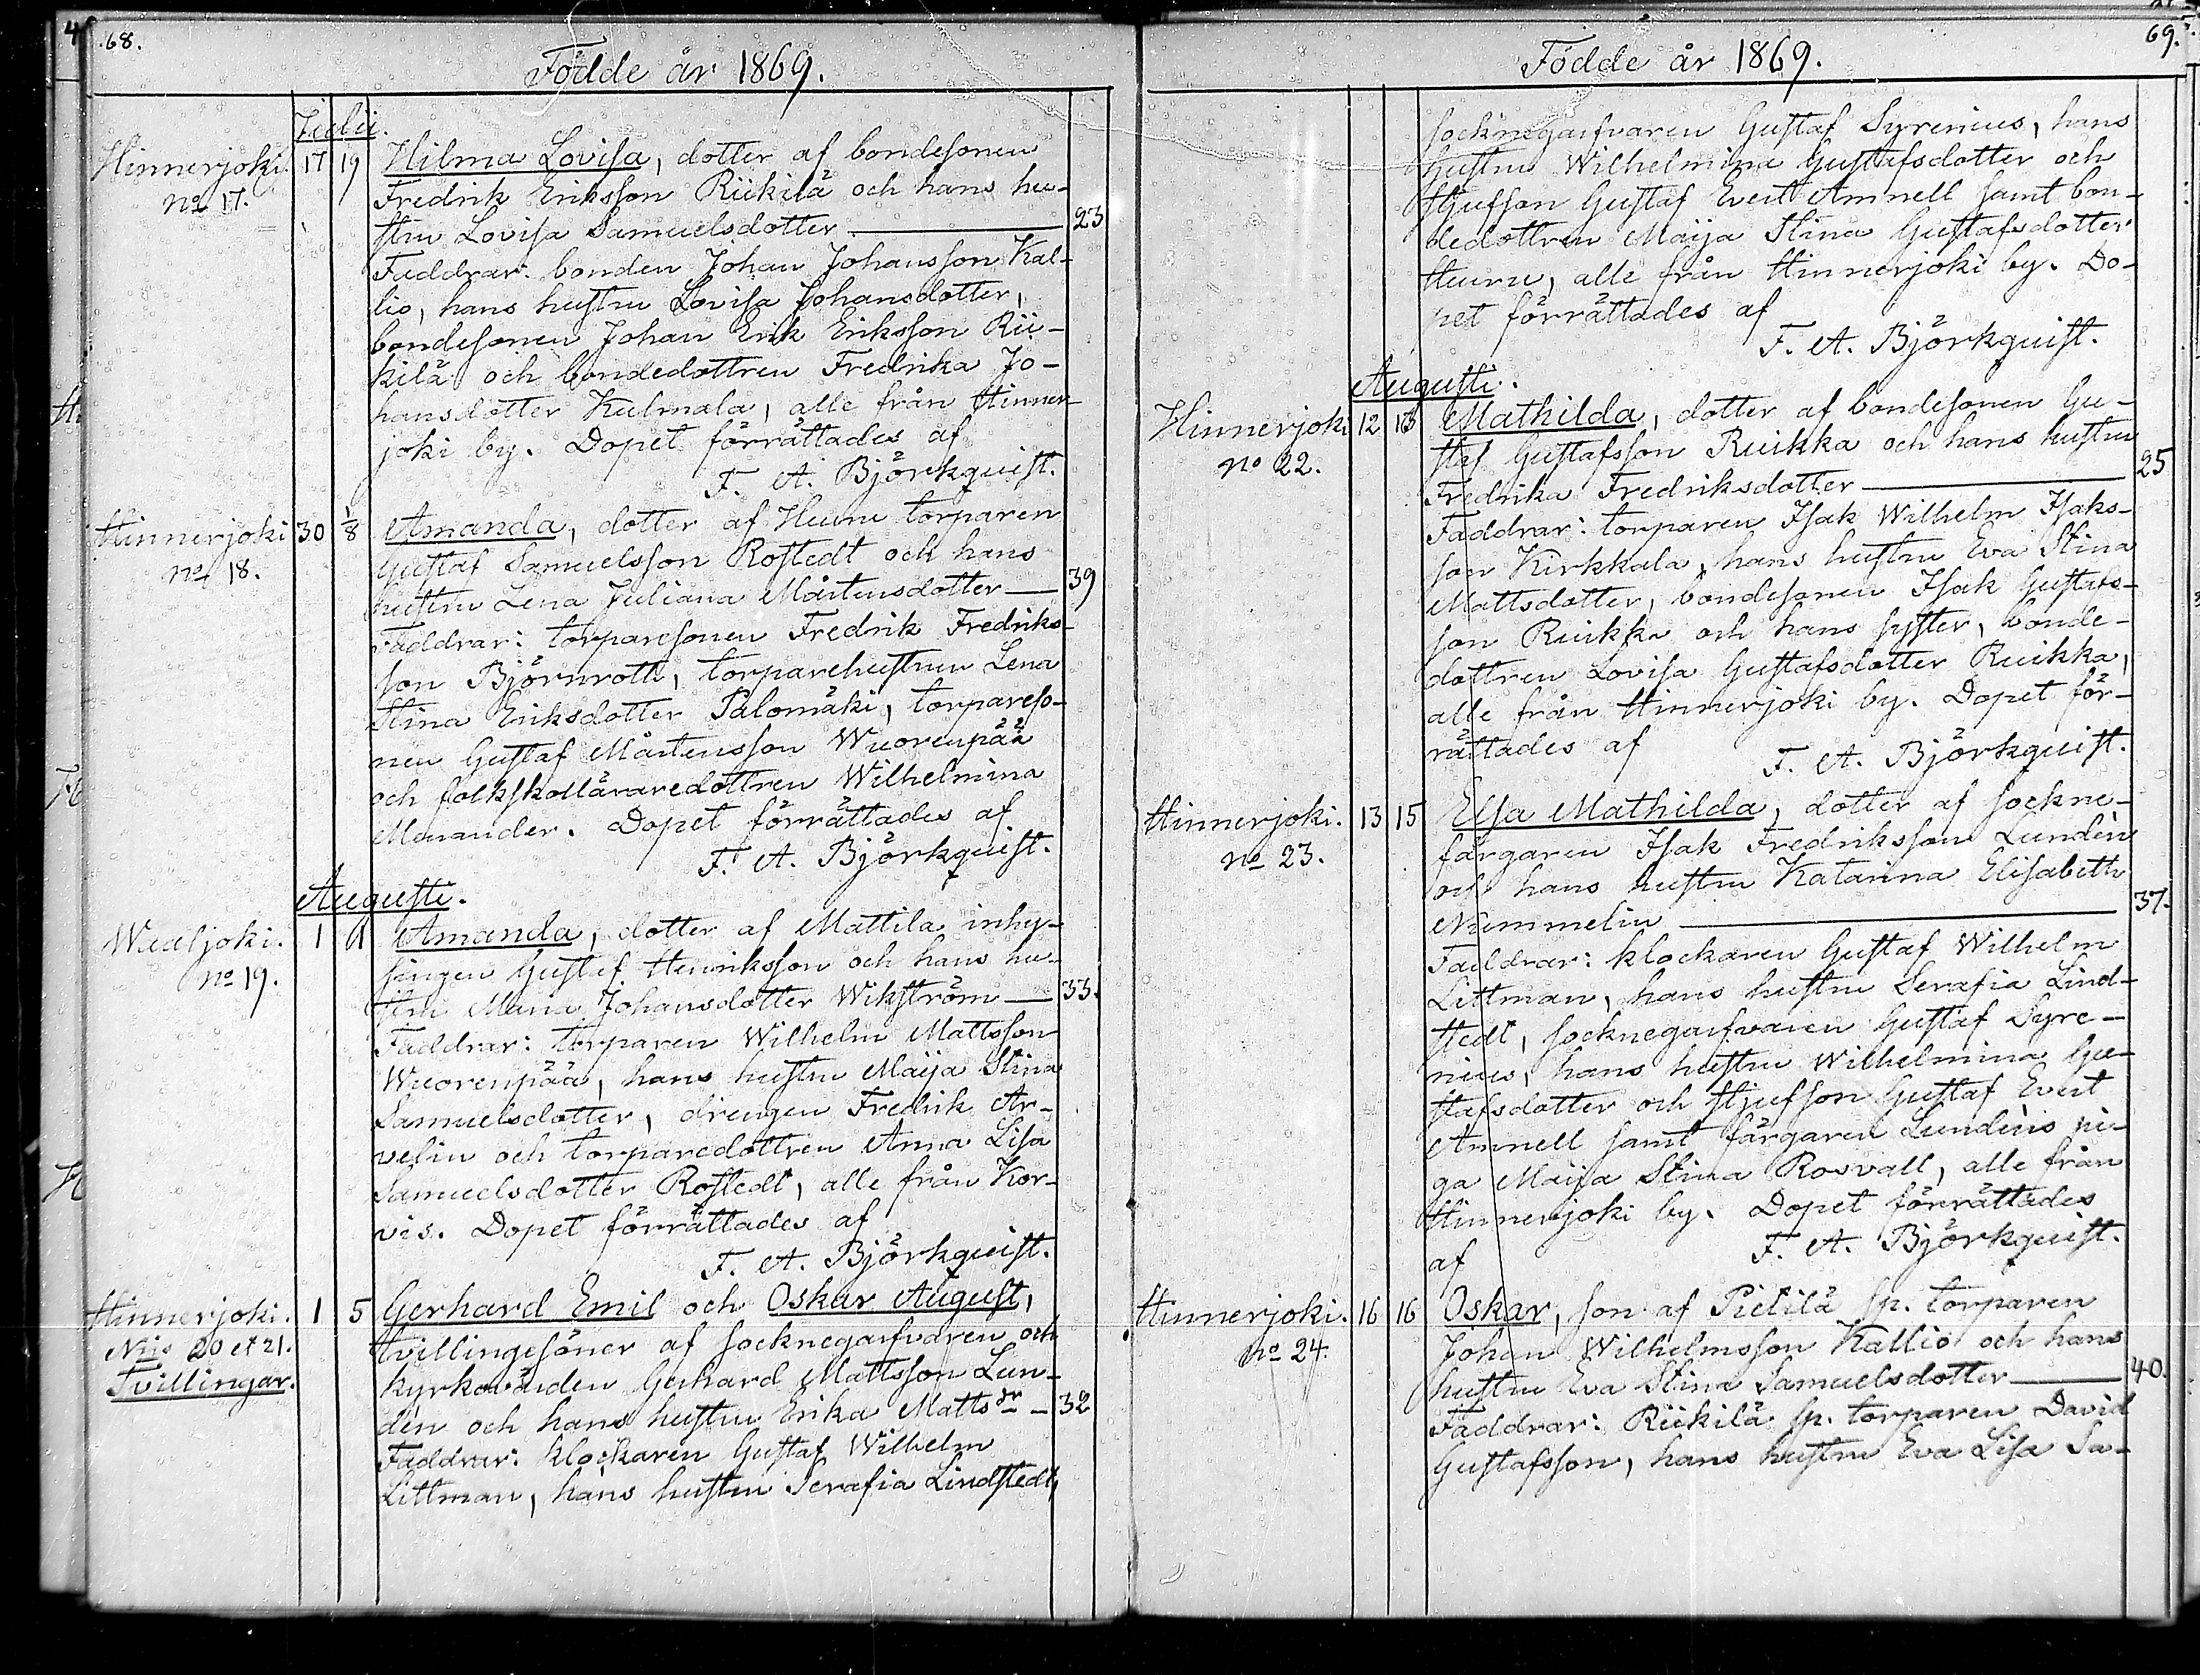 68.
Födde år 1869.
Julii.
Hinnerjoki. 17 19 Hilma Lovisa, dotter af bondesonen
No 17. Fredrik Eriksson Riikilä och hans hu-
stru Lovisa Samuelsdotter — 23
Faddrar: bonden Johan Johansson Kal-
lio, hans hustru Lovisa Johansdotter,
bondesonen Johan Erik Eriksson Rii-
kilä och bondedottren Fredrika Jo-
hansdotter Kulmala, alle från Hinner-
joki by. Dopet förrättades af
F. A. Björkquist.
Hinnerjoki 30 1/8 Amanda, dotter af Heuru torparen
No 18. Gustaf Samuelsson Rostedt och hans
hustru Lena Juliana Mårtensdotter — 39
Faddrar: torparesonen Fredrik Fredriks-
son Björnroth, torparehustrun Lena
Stina Eriksdotter Palomäki, torpareso-
nen Gustaf Mårtensson Wuorenpää
och folkskollararedottren Wilhelmina
Menander. Dopet förrättades af
F. A. Björkquist.
Augusti.
Waaljoki. 1 1 Amanda, dotter af Mattila inhy-
No 19. singen Gustaf Henriksson och hans hu-
stru Maria Johansdotter Wikström — 33.
Faddrar: torparen Wilhelm Mattsson
Wuorenpää, hans hustru Maija Stina
Samuelsdotter, drengen Fredrik Ar-
velin och torparedottren Anna Lisa
Samuelsdotter Rostedt, alle från Kor-
vis. Dopet förrättades af
F. A. Björkquist.
Hinnerjoki. 1 5 Gerhard Emil och Oskar August,
N:is 20 et 21. tvillingesöner af socknegarfvaren och
Tvillingar. kyrkovärden Gerhard Mattsson Lun-
dén och hans hustru Erika Matts dr — 32
Faddrar: klockaren Gustaf Wilhelm
Littman, hans hustru Serafia Lindstedt,
69.
Födde år 1869.
socknegarfvaren Gustaf Syrenius, hans
hustru Wilhelmina Gustafsdotter och
stjufson Gustaf Evert Amnell samt bon-
dedottren Maija Stina Gustafsdotter
Heuru, alle från Hinnerjoki by. Do-
pet förrättades af
F. A. Björkquist.
Augusti.
Hinnerjoki 12 13 Mathilda, dotter af bondesonen Gu-
No 22. staf Gustafsson Ruikka och hans hustru
Fredrika Fredriksdotter — 25
Faddrar: torparen Isak Wilhelm Isaks-
son Kirkkala, hans hustru Eva Stina
Mattsdotter, bondesonen Isak Gustafs-
son Ruikka och hans syster, bonde-
dottren Lovisa Gustafsdotter Ruikka,
alle från Hinnerjoki by. Dopet för-
rättades af
F. A. Björkquist.
Hinnerjoki. 13 15 Elsa Mathilda, dotter af sockne-
No 23. färgaren Isak Fredriksson Lundén
och hans hustru Katarina Elisabeth
Nummelin — 37.
Faddrar: klockaren Gustaf Wilhelm
Littman, hans hustru Serafia Lind-
stedt, socknegarfvaren Gustaf Syre-
nius, hans hustru Wilhelmina Gu-
stafsdotter och stjufson Gustaf Evert
Amnell samt färgaren Lundéns pi-
ga Maija Stina Rosvall, alle från
Hinnerjoki by. Dopet förrättades
af F. A. Björkquist.
Hinnerjoki. 16 16 Oskar, son af Pietilä sp. torparen
No 24. Johan Wilhelmsson Kallio och hans
hustru Eva Stina Samuelsdotter — 40.
Faddrar: Riikilä sp. torparen David
Gustafsson, hans hustru Eva Lisa Sa-